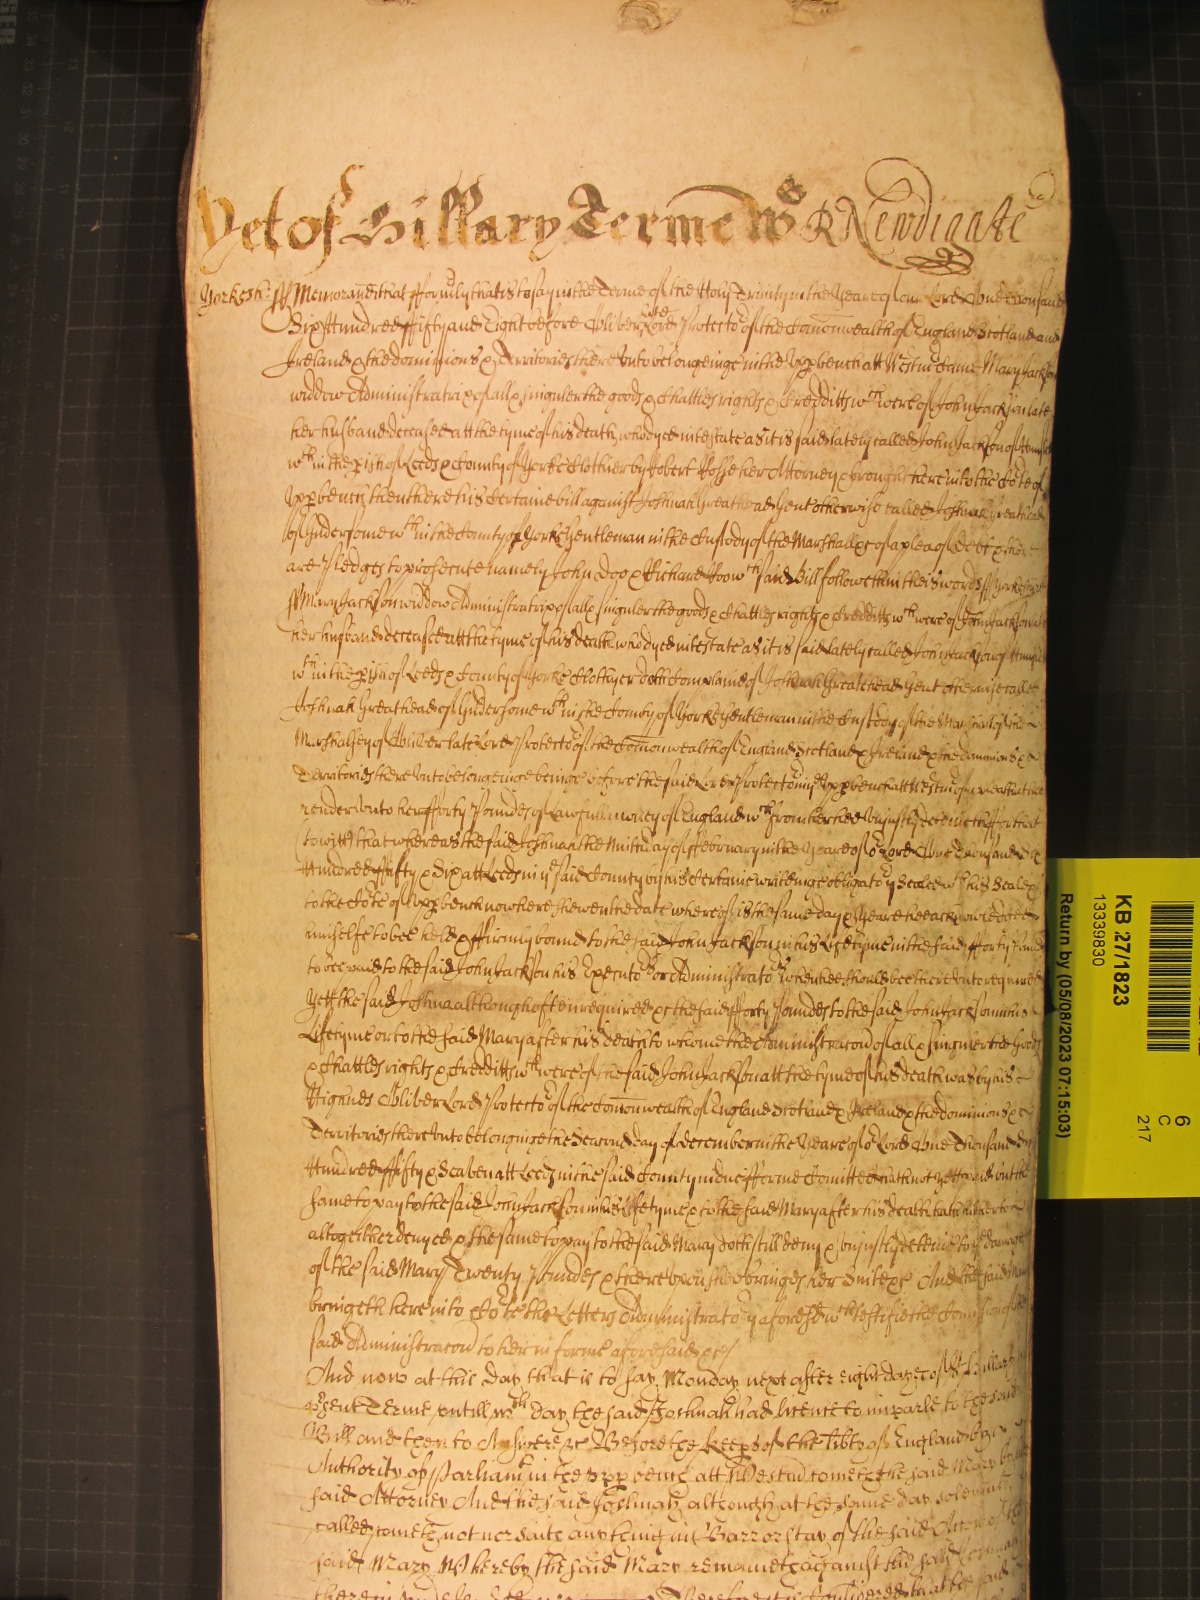 Yet of Hillary Terme Wts RNewdigate
Yorkesh: ss Memorandu that fformly that is to say in the Terme of the Holy Trinity in the Yeare of our Lord One Thousand
Six Hundred ffifty and Eight before Oliver late Lord Protector of the Comonwealth of England Scotland and
Ireland & the dominions & Territories there unto belongeinge in the Upp bench att Westm Came Mary Jackson
widdow Administratrix of all & singuler the goods & Chattles rights & Creditts wch were of John Jackson late
her husband deceased att the tyme of his death who dyed intestate as it is said lately called John Jackson of
wthin the pish of Leeds & County of Yorke Clothier by Robert Rosse her Attorney & brought here into the Cote of
Upp bench then there his Certaine bill against Joshuah Greathead Gent otherwise called Joshuah Greathead
of Gyldersome wthin the County of Yorke Gentleman in the Custody of the Marshall &c of a plea of debt & there
are Pledges to prosecute namely John Doo & Richard Roo wch said Bill followeth in theis words ss Yorkeshire
ss Mary Jackson widdow Administratrix of all & singuler the goods & Chattles rights & Creditts wch were of John Jackson late
her husband deceased att the tyme of his death who dyed intestate as it is said lately called John Jackson of
wthin the pish of Leeds & County of Yorke Clothyer doth Complaine of Joshuah Greatehead Gent otherwise called
Joshuah Greathead of Gildersome wthin the County of Yorke Gentleman in the Custody of the Marshall of the
Marshalsey of Oliver late Lord Protector of the Comonwealth of England Scotland & Ireland & the dominions &
Territories there Unto belongeinge beinge before the said Lord Protector in ye Upp bench att Westm of a plea that hee
render unto her fforty Poundes of Lawfull money of England wch from her hee Uniustly deteineth ffor that
to witt that whereas the said Joshuah the Ninth day of ffebruary in the Yeare of or Lord One Thousand Six
Hundred ffifty & Six att Leeds in ye said County by his Certaine writeinge obligatory Sealed wth his Seale &
to the Cote of Upp bench now here shewen the date whereof is the same day & Yeare hee acknowledged
himselfe to bee held & ffirmly bound to the said John Jackson in his Lifetyme in the said fforty Pounds
to bee paid to the said John Jackson his Executors or Administrators when hee should bee thereunto required
Yett the said Joshua although often required &c the said fforty Poundes to the said John Jackson in his
Lifetyme or to the said Mary after his death to whome the Administracon of all & singuler the Goods
& Chattles rights & Creditts wch were of the said John Jackson att the tyme of his death was by his
Highnes Oliver Lord Protector of the Comonwealth of England Scotland & Ireland & the dominions &
Territories there Unto belonginge the Second day of december in the Yeare of or Lord One Thousand Six
Hundred ffifty & Seaben att Leeds in the said County in due fforme Comitted hath not yett paid but the
same to pay to the said John Jackson in his Lifetyme & to the said Mary after his death hath hitherto
altogether denyed & the same to pay to the said Mary doth still deny & uniustly deteine to ye damage
of the said Mary Twenty Poundes & there upon shee bringes her suite &c And the said Mary
bringeth here into Cote the Letters Administratory aforesd wch testifie the Comission of the
said Administracon to her in forme aforesaid &c
And now at this day that is to say Monday next after eight dayes of St Hillary
psent Terme untill wch day the said Joshuah had licence to imparle to the said
Bill and then to Answere &c Before the Keeps of the libty of England by
Authority of Parliamt in the upp bench att Westm cometh the said Mary by her
said Attorney And the said Joshuah although at the same day solemnly
called cometh not nor saith any thing in Barr or stay of the said Accon of the
said Mary Whereby the said Mary remaineth against the said Joshuah
therein
KB 27/1823
13339830
Return by (05/08/2023 07:15:03)
6
C
217